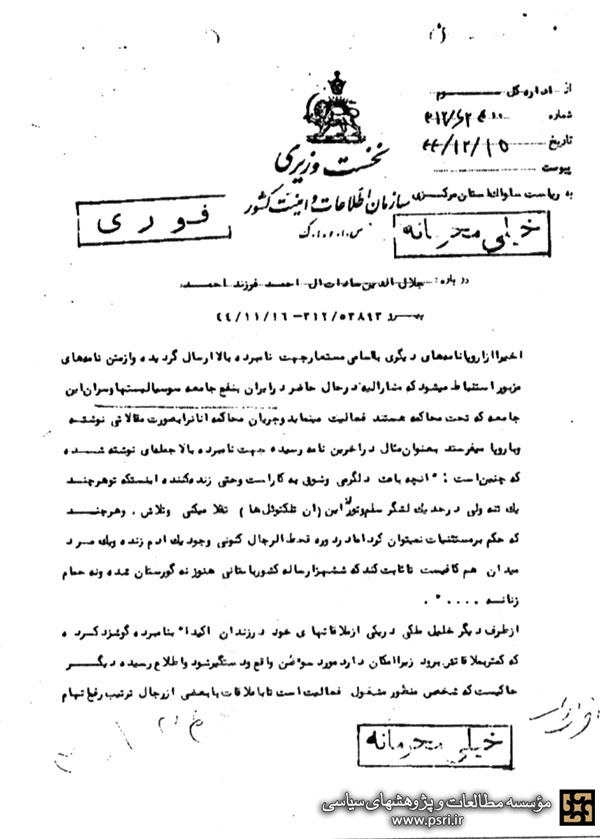 از اداره کل سوم
شماره ۳۱۲/
تاریخ ۴۴/۱۲/۱۵
پیوست
نخست وزیری
سازمان اطلاعات و امنیت کشور
س.ا.و.ا.ک
به ریاست ساواک استان مرکزی
فوری
خیلی محرمانه
درباره : جلال الدین سادات ال احمد فرزند احمد
پیرو ۳۱۲/۵۳۸۹۳ - ۴۴/۱۱/۱۶
اخیرا از اروپا نامه های دیگری با اسامی مستعار جهت نامبرده بالا ارسال گردیده و از متن نامه های
مزبور استنباط میشود که مشارالیه در حال حاضر در ایران بنفع جامعه سوسیالیستها و سران این
جامعه که تحت محاکمه هستند فعالیت مینماید و جریان محاکمه انانرا بصورت مقالاتی نوشته
و باروپا میفرستد بعنوان مثال در اخرین نامه رسیده جهت نامبرده بالا جمله ای نوشته شده
که چنین است : " انچه باعث دلگرمی و شوق به کار است و حتی زنده کننده اینستکه تو هر چند
یک تنه ولی در حد یک لشگر سلم و تور از این (ان تلکتوئل ها) تقلا میکنی و تلاش . و هر چند
که حکم بر مستثنیات نمیتوان کرد اما در دوره قحط الرجال کنونی وجود یک ادم زنده و یک مرد
میدان هم کافیست تا ثابت کند که ششهزار ساله کشور باستانی هنوز نه گورستان شده و نه حمام
زنانه .... " .
از طرف دیگر خلیل ملکی در یکی از ملاقاتهای خود در زندان اکیدا" بنامبرده گوشزد کرده
که کمتر بملاقاتش برود زیرا امکان دارد مورد سوءظن واقع و دستگیر شود و اطلاع رسیده دیگر
حاکیست که شخصی منظور مشغول فعالیت است تا با ملاقات با بعضی از رجال ترتیب رفع اتهام
خیلی محرمانه
مؤسسه مطالعات و پژوهشهای سیاسی
www.psri.ir